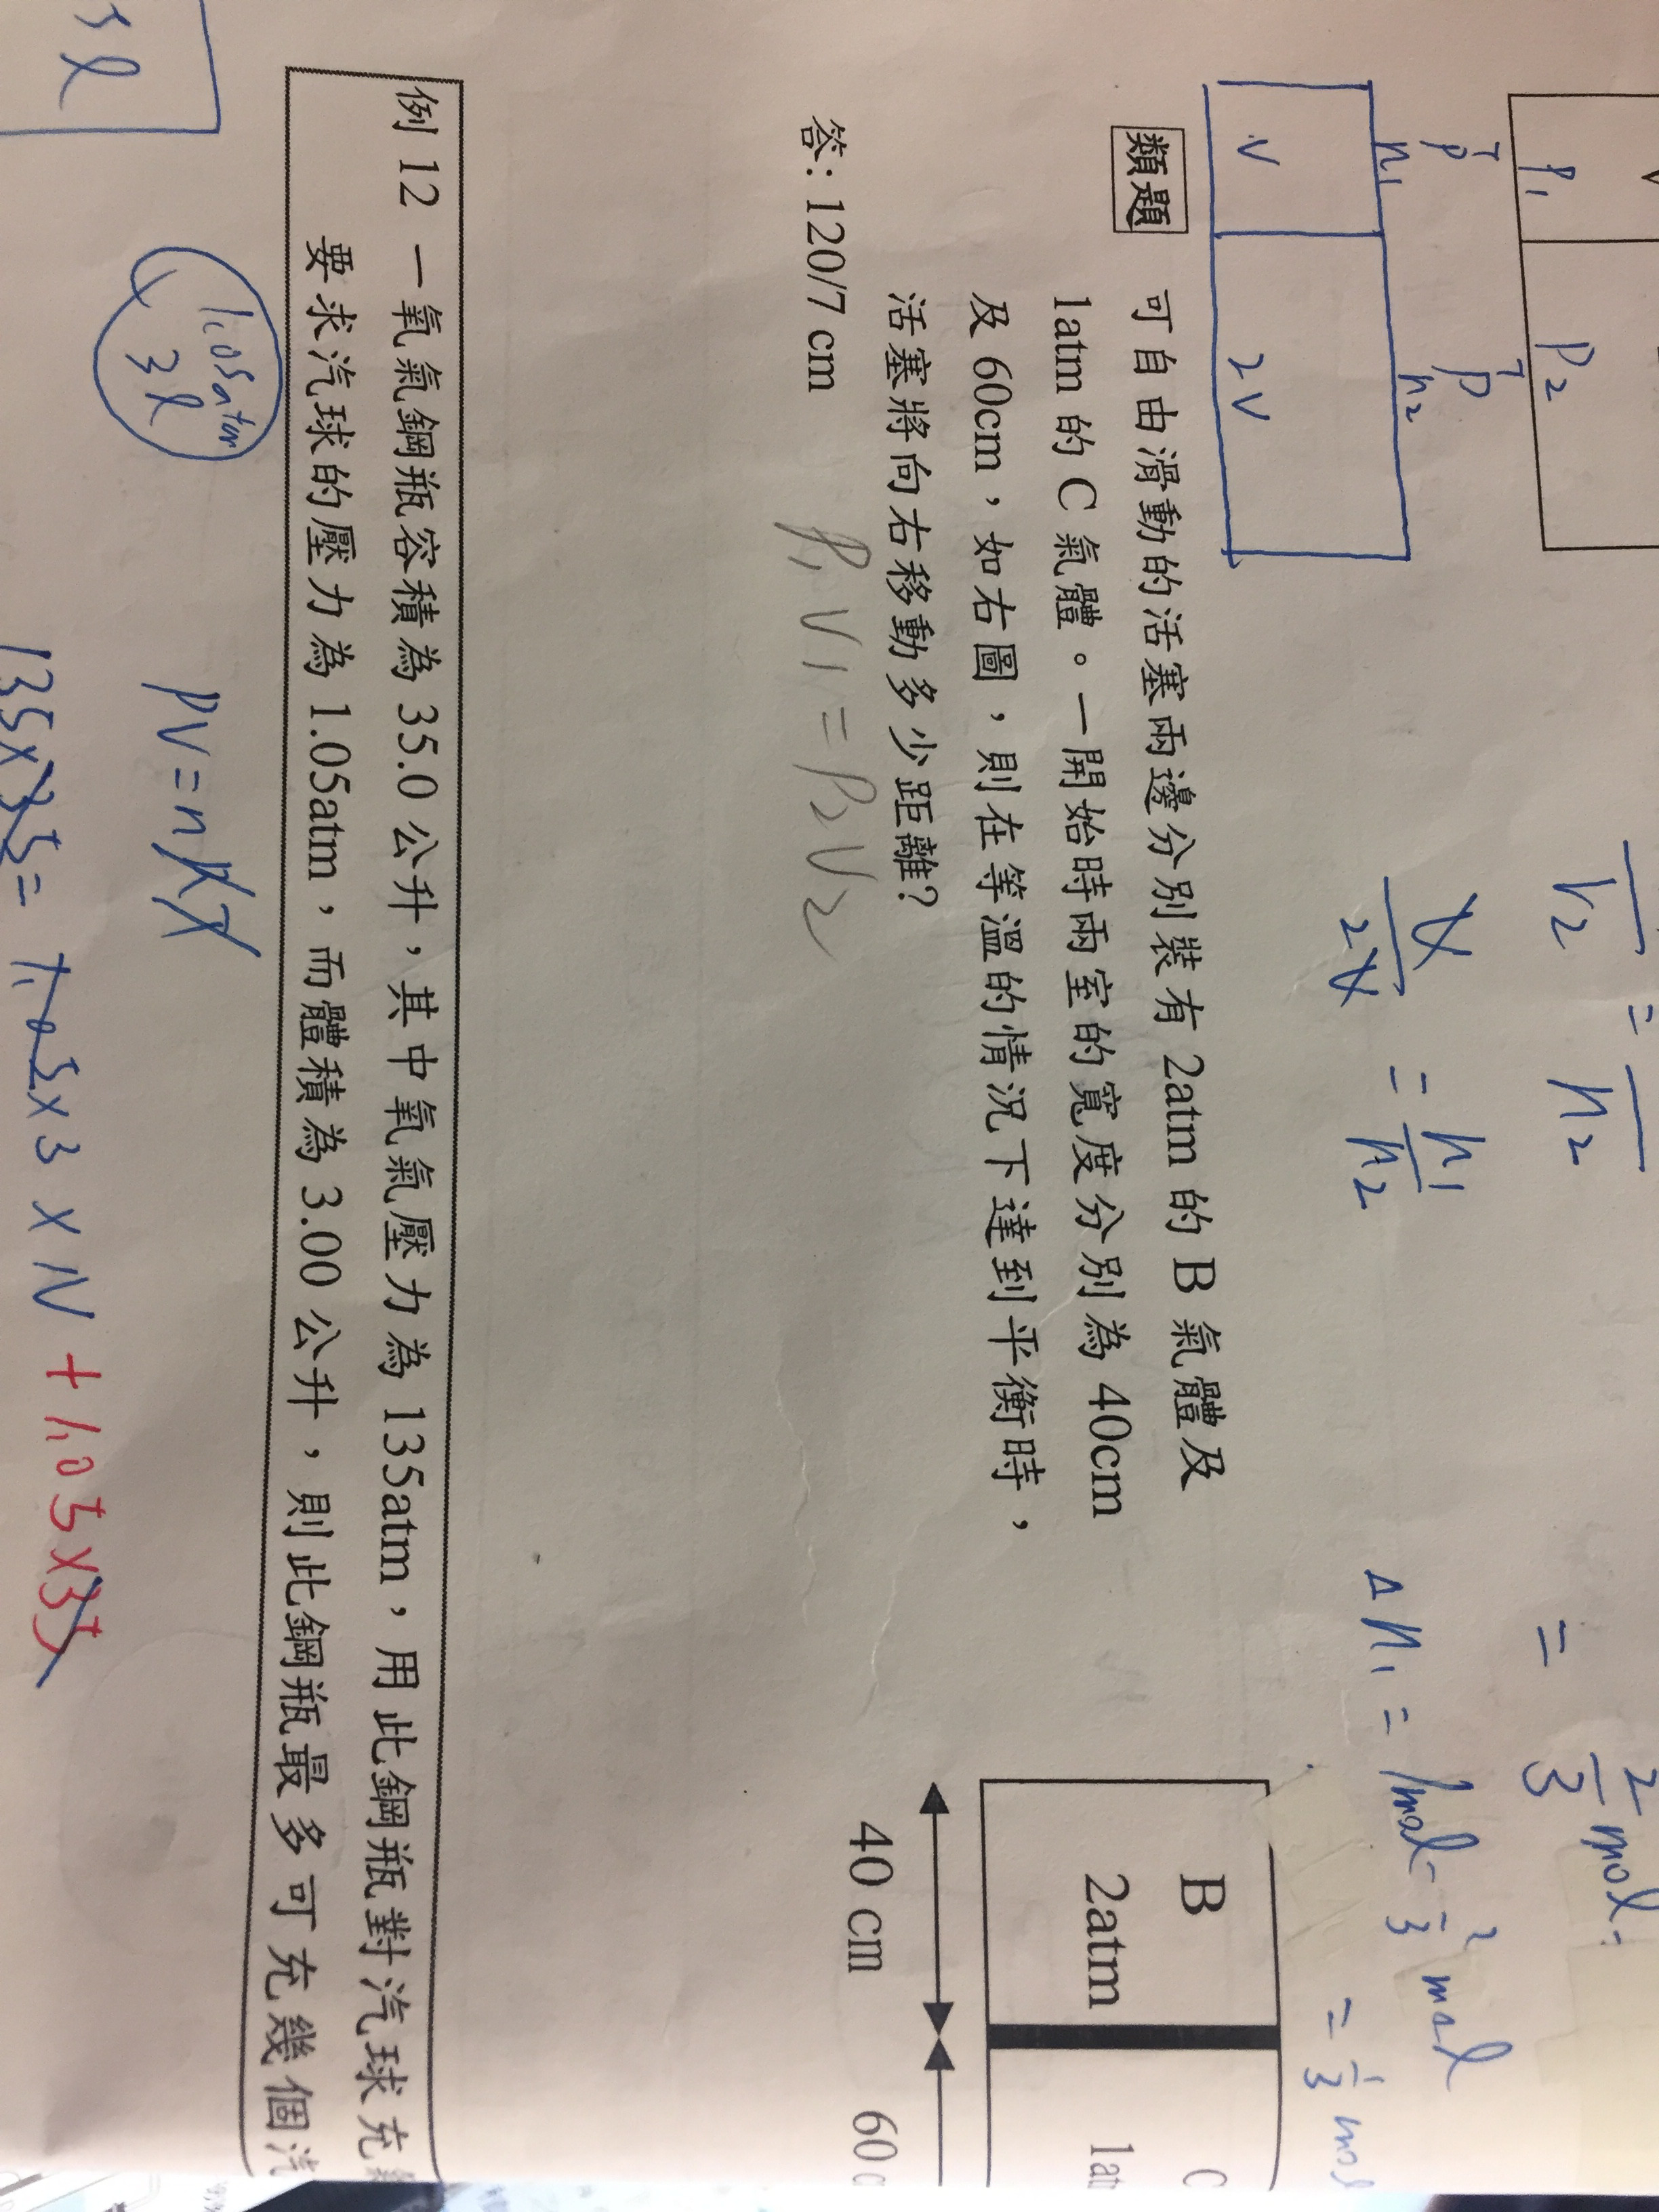 V
P₁ P₂
P̄ P̄
n₁ n₂
V 2V
V₂ = n₂
V/2V = n₁/n₂
= 2/3 mol
Δn₁ = 1mol - 2/3 mol = 1/3 mol
類題 可自由滑動的活塞兩邊分別裝有 2atm 的 B 氣體及
1atm 的 C 氣體。一開始時兩室的寬度分別為 40cm
及 60cm，如右圖，則在等溫的情況下達到平衡時，
活塞將向右移動多少距離?
答: 120/7 cm
P₁V₁=P₂V₂
B C
2atm
40 cm 60
例 12 一氧氣鋼瓶容積為 35.0 公升，其中氧氣壓力為 135atm，用此鋼瓶對汽球充
要求汽球的壓力為 1.05atm，而體積為 3.00 公升，則此鋼瓶最多可充幾個汽
1.05atm
3ℓ
PV=nRT
3ℓ
135×35= 1.05×3×N+1.05×35